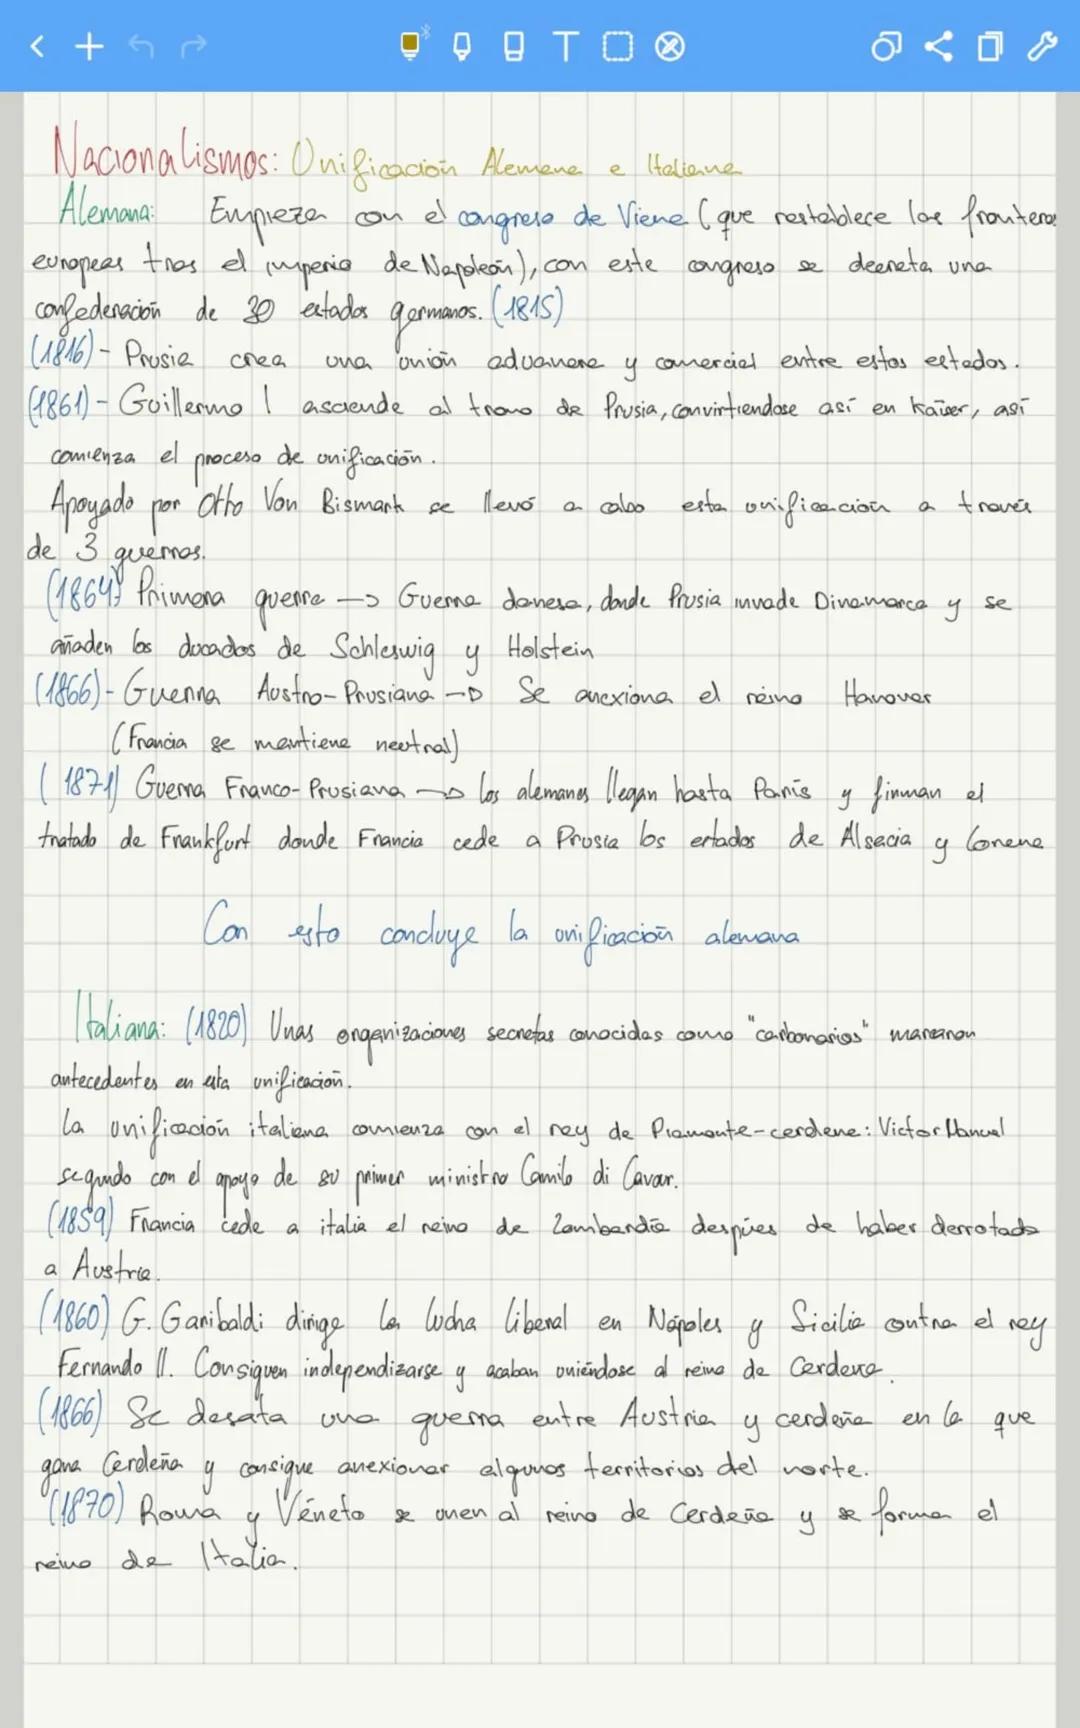 Nacionalismos: Unificación Alemana e Italiana
Alemana: Empieza con el congreso de Viena (que restablece las fronteras
europeas tras el imperio de Napoleón), con este congreso se decreta una
confederación de 39 estados germanos. (1815)
(1816) - Prusia crea una unión aduanera y comercial entre estos estados.
(1861) - Guillermo I asciende al trono de Prusia, convirtiendose así en Kaiser, así
comienza el proceso de unificación.
Apoyado por Otto Von Bismark se llevó a cabo esta unificación a través
de 3 guerras.
(1864) Primera guerra → Guerra danesa, donde Prusia invade Dinamarca y se
añaden los ducados de Schleswig y Holstein
(1866) - Guerra Austro-Prusiana → Se anexiona el reino Hanover
(Francia se mantiene neutral)
(1871) Guerra Franco-Prusiana → los alemanes llegan hasta París y firman el
tratado de Frankfurt donde Francia cede a Prusia los estados de Alsacia y Lorena
Con esto concluye la unificación alemana
Italiana: (1820) Unas organizaciones secretas conocidas como "carbonarios" marcaron
antecedentes en esta unificación.
La unificación italiana comienza con el rey de Piamonte-cerdena: Victor Manuel
segundo con el apoyo de su primer ministro Camilo di Cavour.
(1859) Francia cede a italia el reino de Lombardía despúes de haber derrotado
a Austria.
(1860) G. Garibaldi dirige la lucha liberal en Nápoles y Sicilia contra el rey
Fernando II. Consiguen independizarse y acaban uniéndose al reino de Cerdeña.
(1866) Se desata una guerra entre Austria y cerdeña en la que
gana Cerdeña y consigue anexionar algunos territorios del norte.
(1870) Roma y Véneto se unen al reino de Cerdeña y se forma el
reino de Italia.